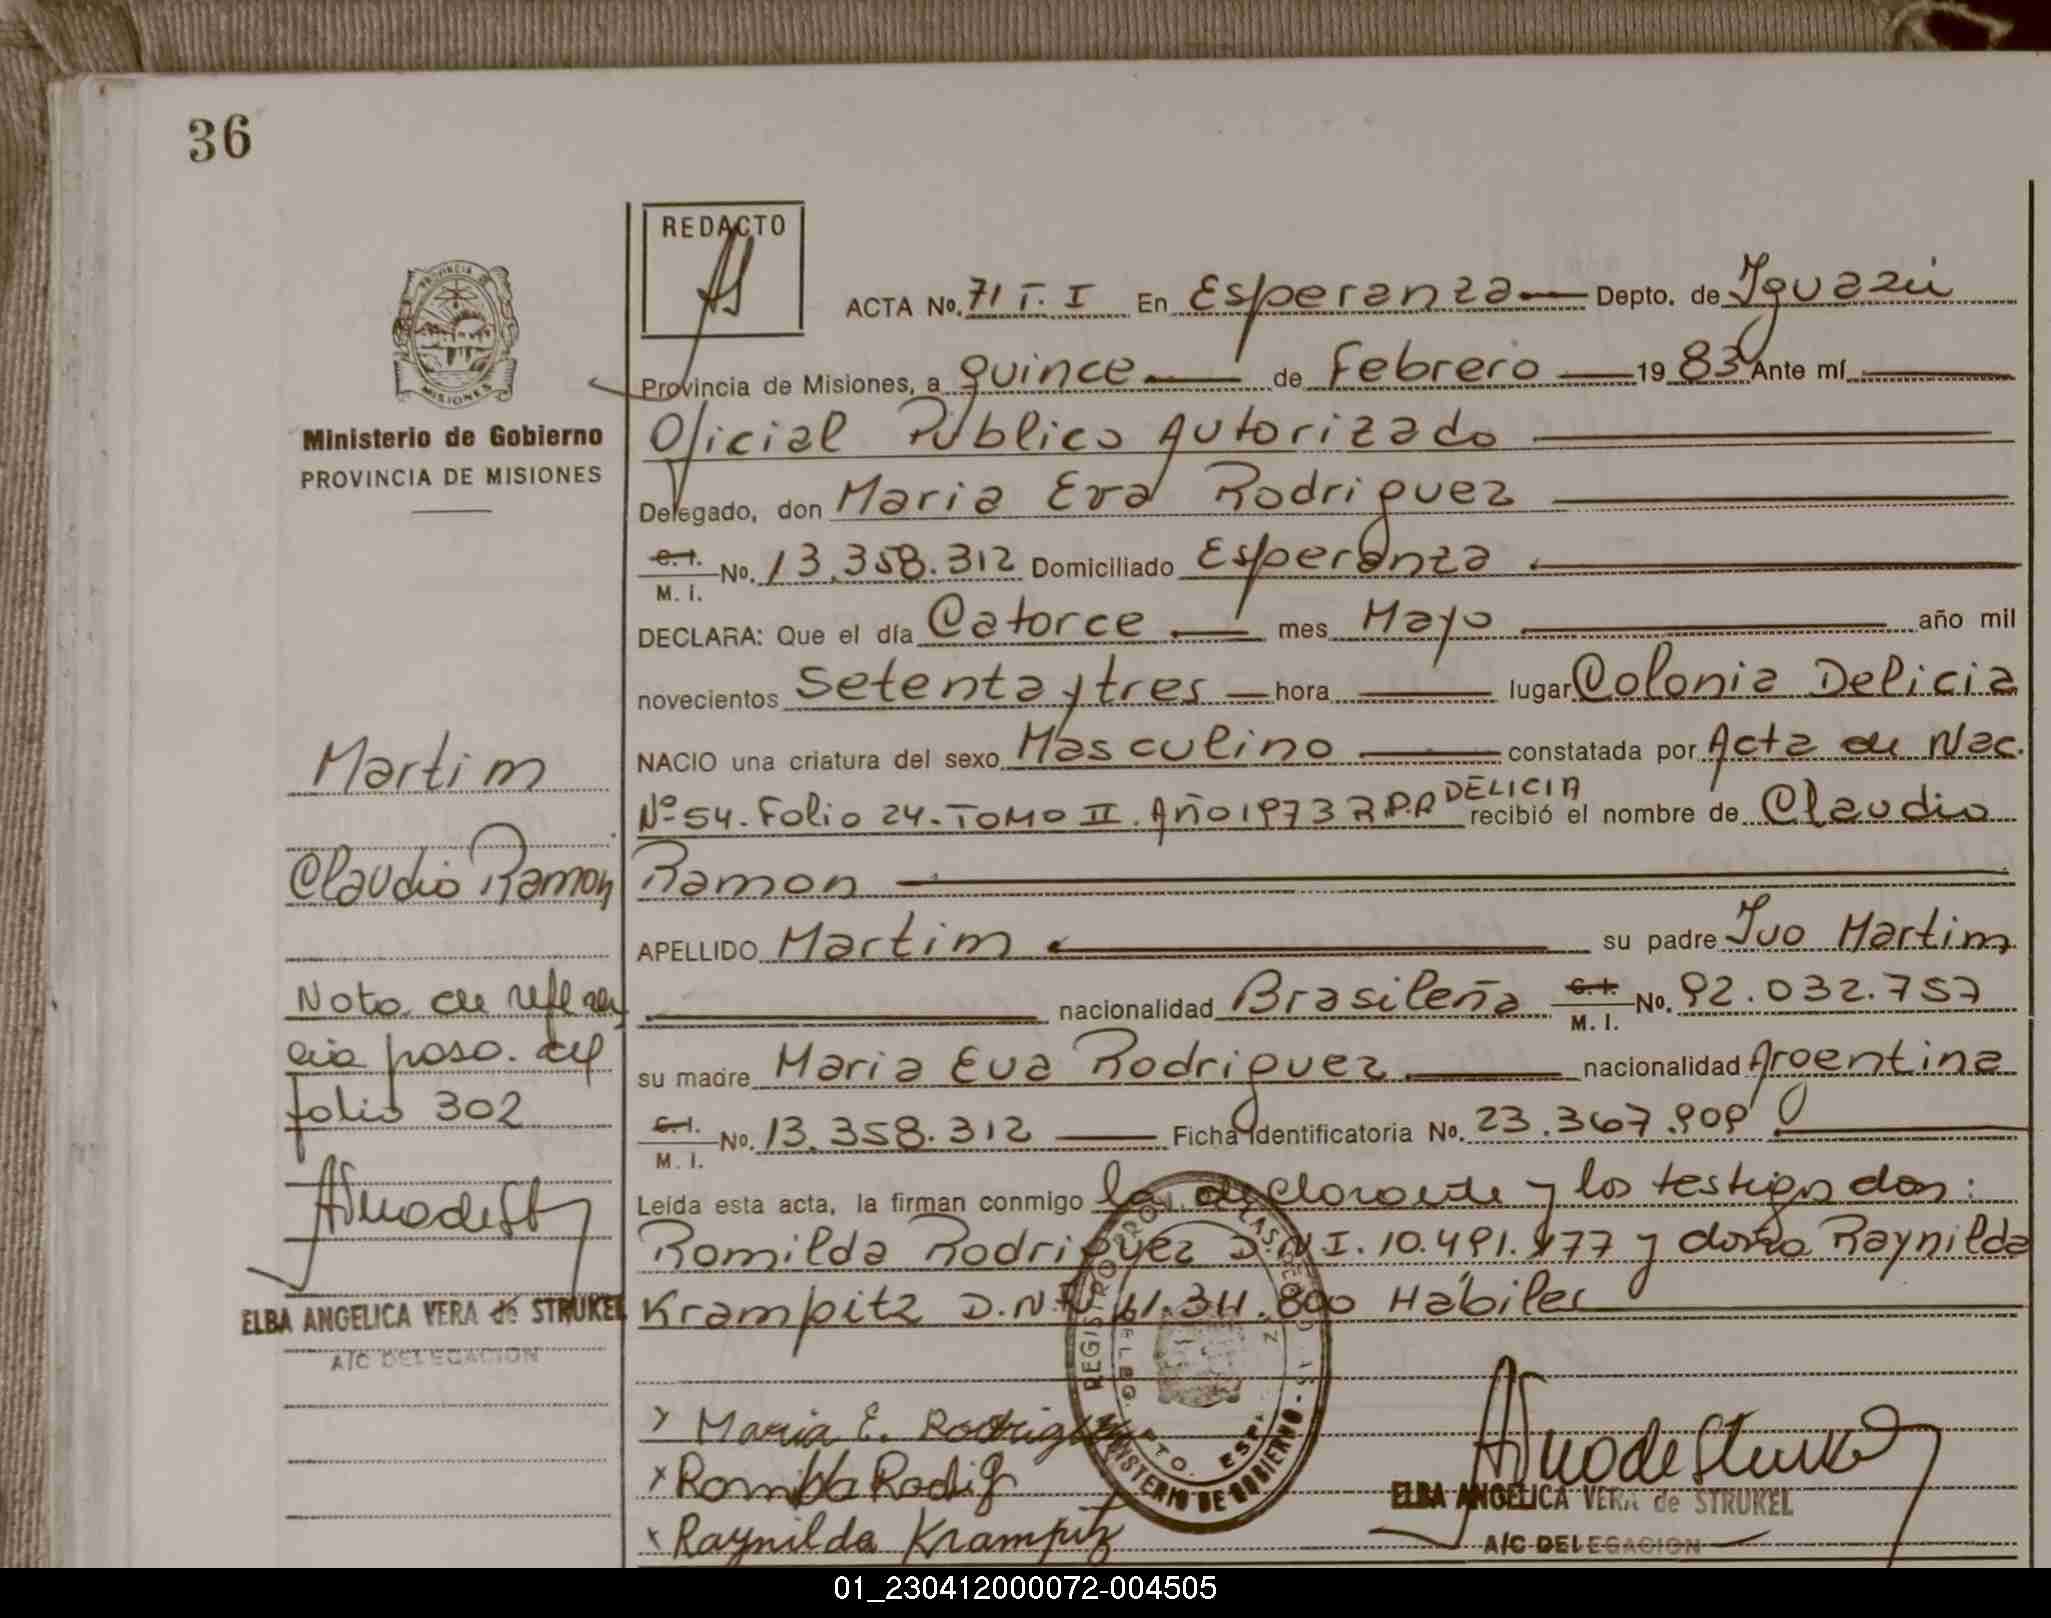 36
REDACTO
ACTA No. 71 T. I En Esperanza Depto. de Iguazú
Provincia de Misiones, a quince de Febrero 19 83 Ante mí
Oficial Publico Autorizado
Delegado, don Maria Eva Rodriguez
C. I. M. I. No. 13.358.312 Domiciliado Esperanza
DECLARA: Que el día Catorce mes Mayo año mil
novecientos Setenta y tres hora lugar Colonia Delicia
NACIO una criatura del sexo Masculino constatada por Acta de Nac.
Nº 54. Folio 24. TOMO II. Año 1973 DELICIA recibió el nombre de Claudio
Ramon
APELLIDO Martim su padre Ivo Martim
nacionalidad Brasileña C. I. M. I. No. 92.032.757
su madre Maria Eva Rodriguez nacionalidad Argentina
C. I. M. I. No. 13.358.312 Ficha Identificatoria No. 23.367.909
Leída esta acta, la firman conmigo la declarante y los testigos don:
Romilda Rodriguez D.N.I. 10.491.977 y doña Raynilda
Krampitz D.N.I. 11.311.800 Hábiles
Maria E. Rodriguez
Romilda Rodig
Raynilda Krampitz
ELBA ANGELICA VERA de STRUKEL
A/C DELEGACION
PROVINCIA DE
MISIONES
Ministerio de Gobierno
PROVINCIA DE MISIONES
Martim
Claudio Ramon
Nota de referen
cia paso. al
folio 302
ELBA ANGELICA VERA de STRUKEL
A/C DELEGACION
REGISTRO
MINISTERIO DE GOBIERNO
01_230412000072-004505